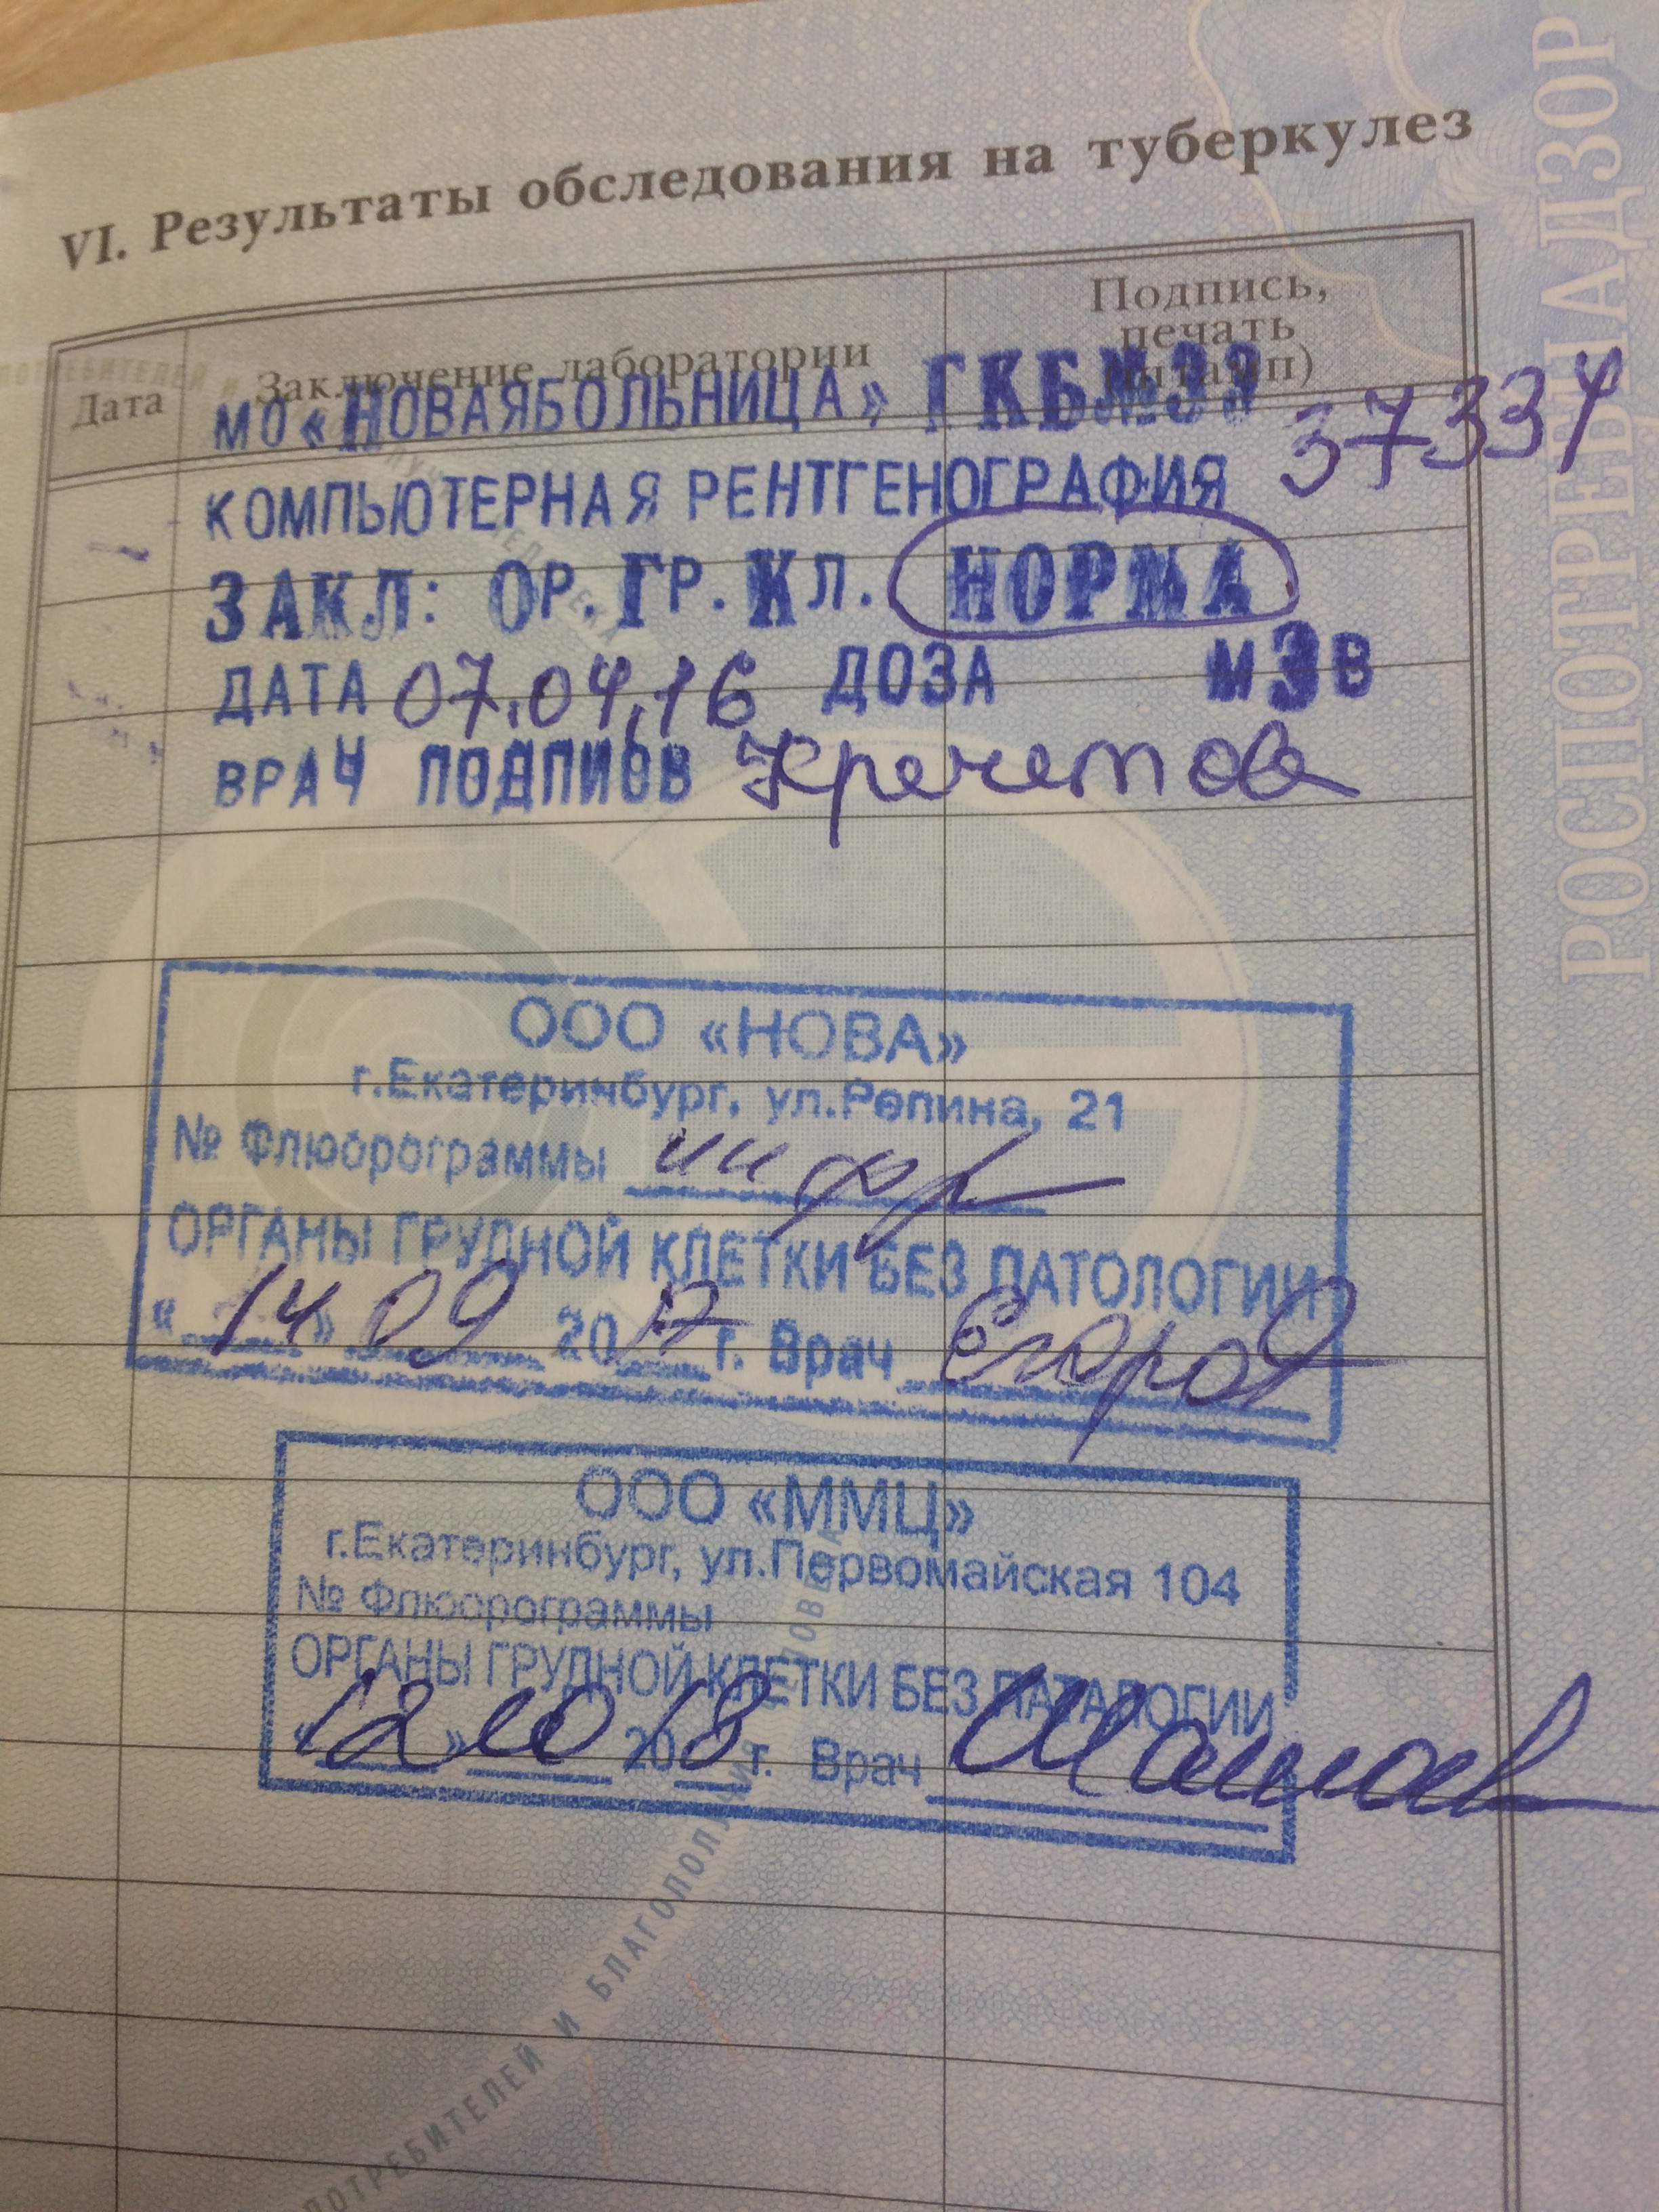 VI. Результаты обследования на туберкулез
Дата
Заключение лаборатории
Подпись,
печать
(штамп)
МО «НОВАЯБОЛЬНИЦА» ГКБ№33
37334
КОМПЬЮТЕРНАЯ РЕНТГЕНОГРАФИЯ
ЗАКЛ: ОР. ГР. КЛ. НОРМА
ДАТА 07.04.16 ДОЗА МЗВ
ВРАЧ ПОДПИСЬ Кречетова
ООО «НОВА»
г.Екатеринбург, ул.Репина, 21
№ Флюорограммы цифр
ОРГАНЫ ГРУДНОЙ КЛЕТКИ БЕЗ ПАТОЛОГИИ
«14» 09 2017 г. Врач Егоров
ООО «ММЦ»
г.Екатеринбург, ул.Первомайская 104
№ Флюорограммы
ОРГАНЫ ГРУДНОЙ КЛЕТКИ БЕЗ ПАТАЛОГИИ
«12» 10 2018 г. Врач
РОСПОТРЕБНАДЗОР
ПОТРЕБИТЕЛЕЙ И БЛАГОПОЛУЧИЯ ЧЕЛОВЕКА